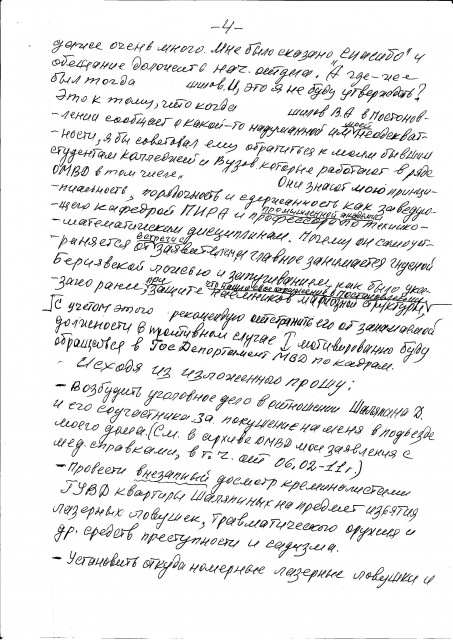 -4-
должное очень много. Мне было сказано "Спасибо" и
обещание доложить о нач. отдела. "А где же
был тогда шилов.И, это я не буду утверждать?
Это к тому, что когда шилов В.А в Постанов-
-лении сообщает о какой-то надуманной им моей неадекват-
-ности, я бы советовал ему обратиться к моим бывшим
студентам колледжей и Вузов которые работают в ряде
ОМВД в том числе. Они знают мою принци-
-пиальность, порядочность и сдержанность как заведую-
-щего кафедрой ПИРА и промышленной академии профессора по технико-
-математическим дисциплинам. Почему он самоуст-
-раняется от встречи с заявителем и главное занимается гнусной
Бериявской ложью и запугиванием, как было ука-
зано ранее, при защите наемников
С учетом этого рекомендую отстранить его от занимаемой
должности в противном случае мотивированно буду
обращаться в Гос Департамент МВД по кадрам.
- Исходя из изложенного прошу:
- Возбудить уголовное дело в отношении Шаляпина Д.
и его соучастника за покушение на меня в подъезде
моего дома. (См. в архиве ОМВД мои заявления с
мед. справками, в т.ч. от 06.02-11г.)
- Провести внезапный досмотр криминалистами
ГУВД квартиры Шаляпиных на предмет изъятия
лазерных ловушек, травматического оружия и
др. средств преступности и садизма.
- Установить откуда номерные лазерные ловушки и